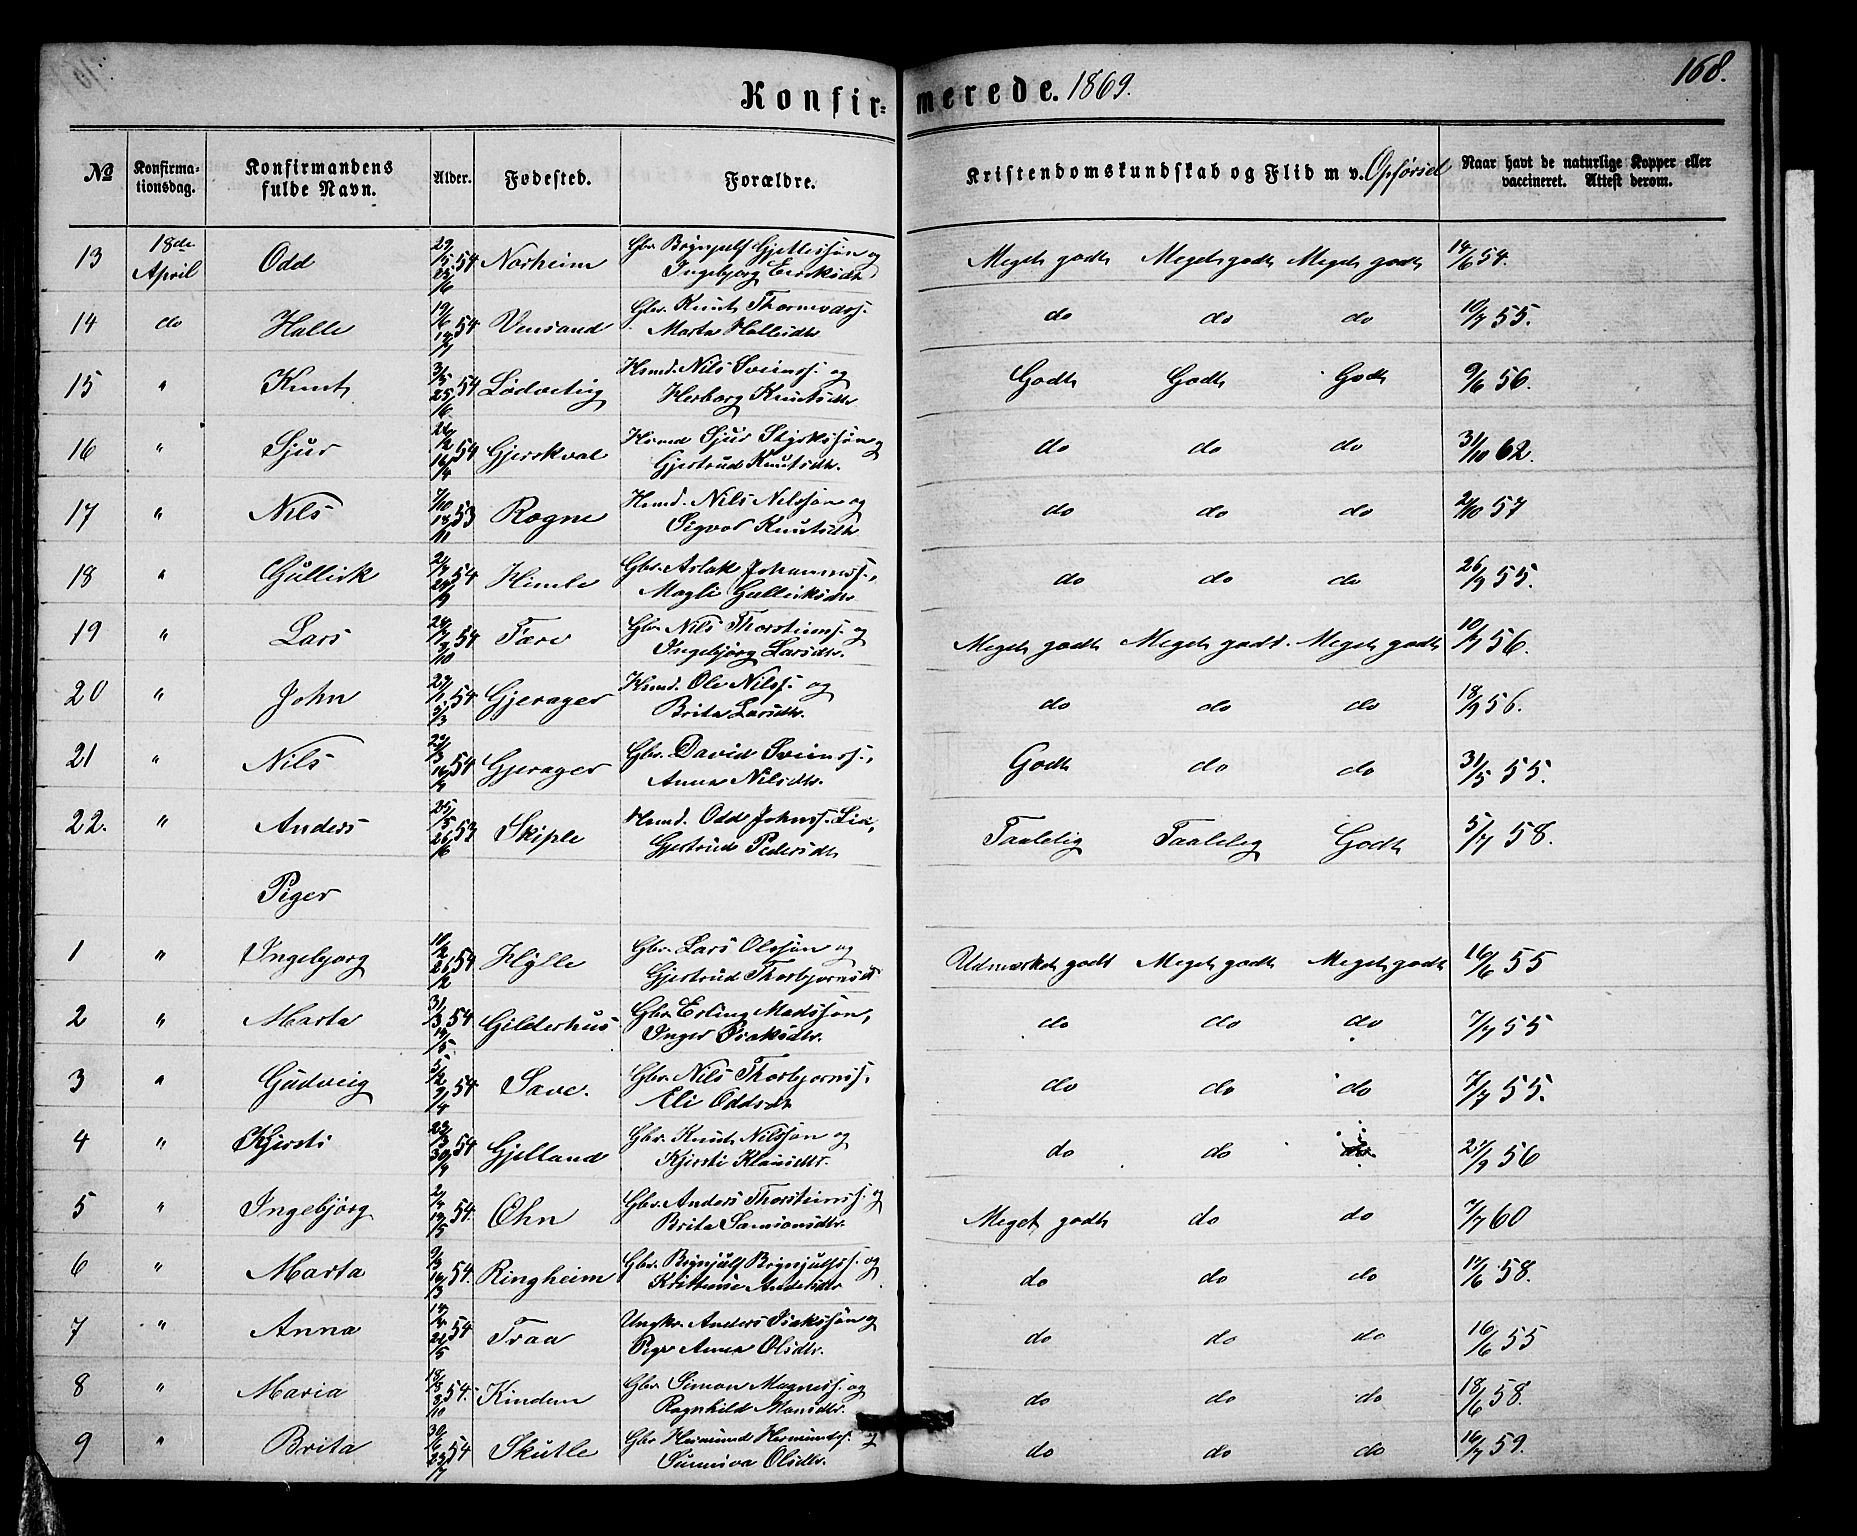 Konfir- merede. 1869. 168.
No Konfirmationsdag. Konfirmandens fulde Navn. Alder. Fødested. Forældre. Kristendomskundskab og Flid m v. Opførsel Naar havt de naturlige Kopper eller vaccineret. Attest derom.
13 18de April Odd 54 Norheim Gbr. Brynjulf Gjellessøn og Ingebjorg Eriksdtr Meget godt Meget godt Meget godt 14/6 54.
14 do Halle 19/6 54 Vensand Gbr. Knut Marta Hallesdtr do do do 10/7 55.
15 " Knut 3/5 25/6 54 Lødveting Hsmd. Nils Sveinss. og Herborg Knutsdtr Godt Godt Godt 9/6 56.
16 " Sjur 54 Gjerskval Hsmd Sjur Styrkssøn og Gjertrud Knutsdtr. do do do 31/10 62.
17 " Nils 7/10 53 Rogne Hsmd. Nils Nilssøn og Sigvor Knutsdtr do do do 2/10 57
18 " Gullick 54 Himle Gbr. Aslak Johanness., Magli Gullicksdtr do do do 26/9 55.
19 " Lars 54 Tære Gbr. Nils Thorsteinss. og Ingebjørg Larsdtr. Meget godt Meget godt. Meget godt 10/7 56.
20 " John 54 Gjerager Hsmd. Ole Nilss. og Brita Larsdtr. do do do 18/9 56.
21 " Nils 54 Gjerager Gbr. David Sveinss., Anna Nilsdtr. Godt do do 31/5 55.
22. " Anders 25/5 26/6 Skiple Hsmd. Odd Johnss. Lie, Gjertrud Pedersdtr Taalelig Taalelig Godt 5/7 58.
Piger
1 " Ingebjorg 10/2 54 Hylle Gbr. Lars Olssøn og Gjertrud Thorbjornsdt Udmærket godt Meget godt Meget godt 16/6 55
2 " Marta 31/3 54 Gilderhus Gbr. Erling Madssøn, Inger Isaksdtr. do do do 7/7 55
3 " Gudveig 54 Save. Gbr. Nils Thorbjornss., Eli Oddsdt do do do 7/7 55.
4 " Kjersti 54 Gjelland Gbr. Knut Nilssøn og Kjersti Klausdtr. do do do 56
5 " Ingebjørg 54. Ohn Gbr. Anders Thorsteinss. og Brita Samsonsdtr. Meget godt do do 7/7 60
6 " Marta 54. Ringheim Gbr. Brynjulf Brynjulfss. og Andersdtr do do do 58.
7 " Anna 54 Traa Ungkr. Anders Isakssøn og Pige Anna Olsdtr. do do do 16/6 55
8 " Maria 54. Kindem Gbr. Simon Magness. og Ragnhild Monsdtr. do do do 18/6 58.
9 " Brita 54 Skutle Gbr Hermund Hermundss. og Sunniva Olsdtr. do do do 16/7 59.